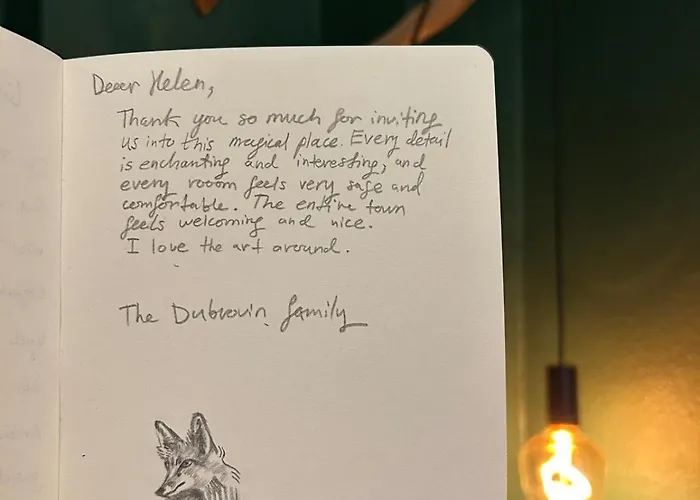 Dear Helen,
Thank you so much for inviting
us into this magical place. Every detail
is enchanting and interesting, and
every rooom feels very safe and
comfortable. The entire town
feels welcoming and nice.
I love the art around.
The Dubrovin family